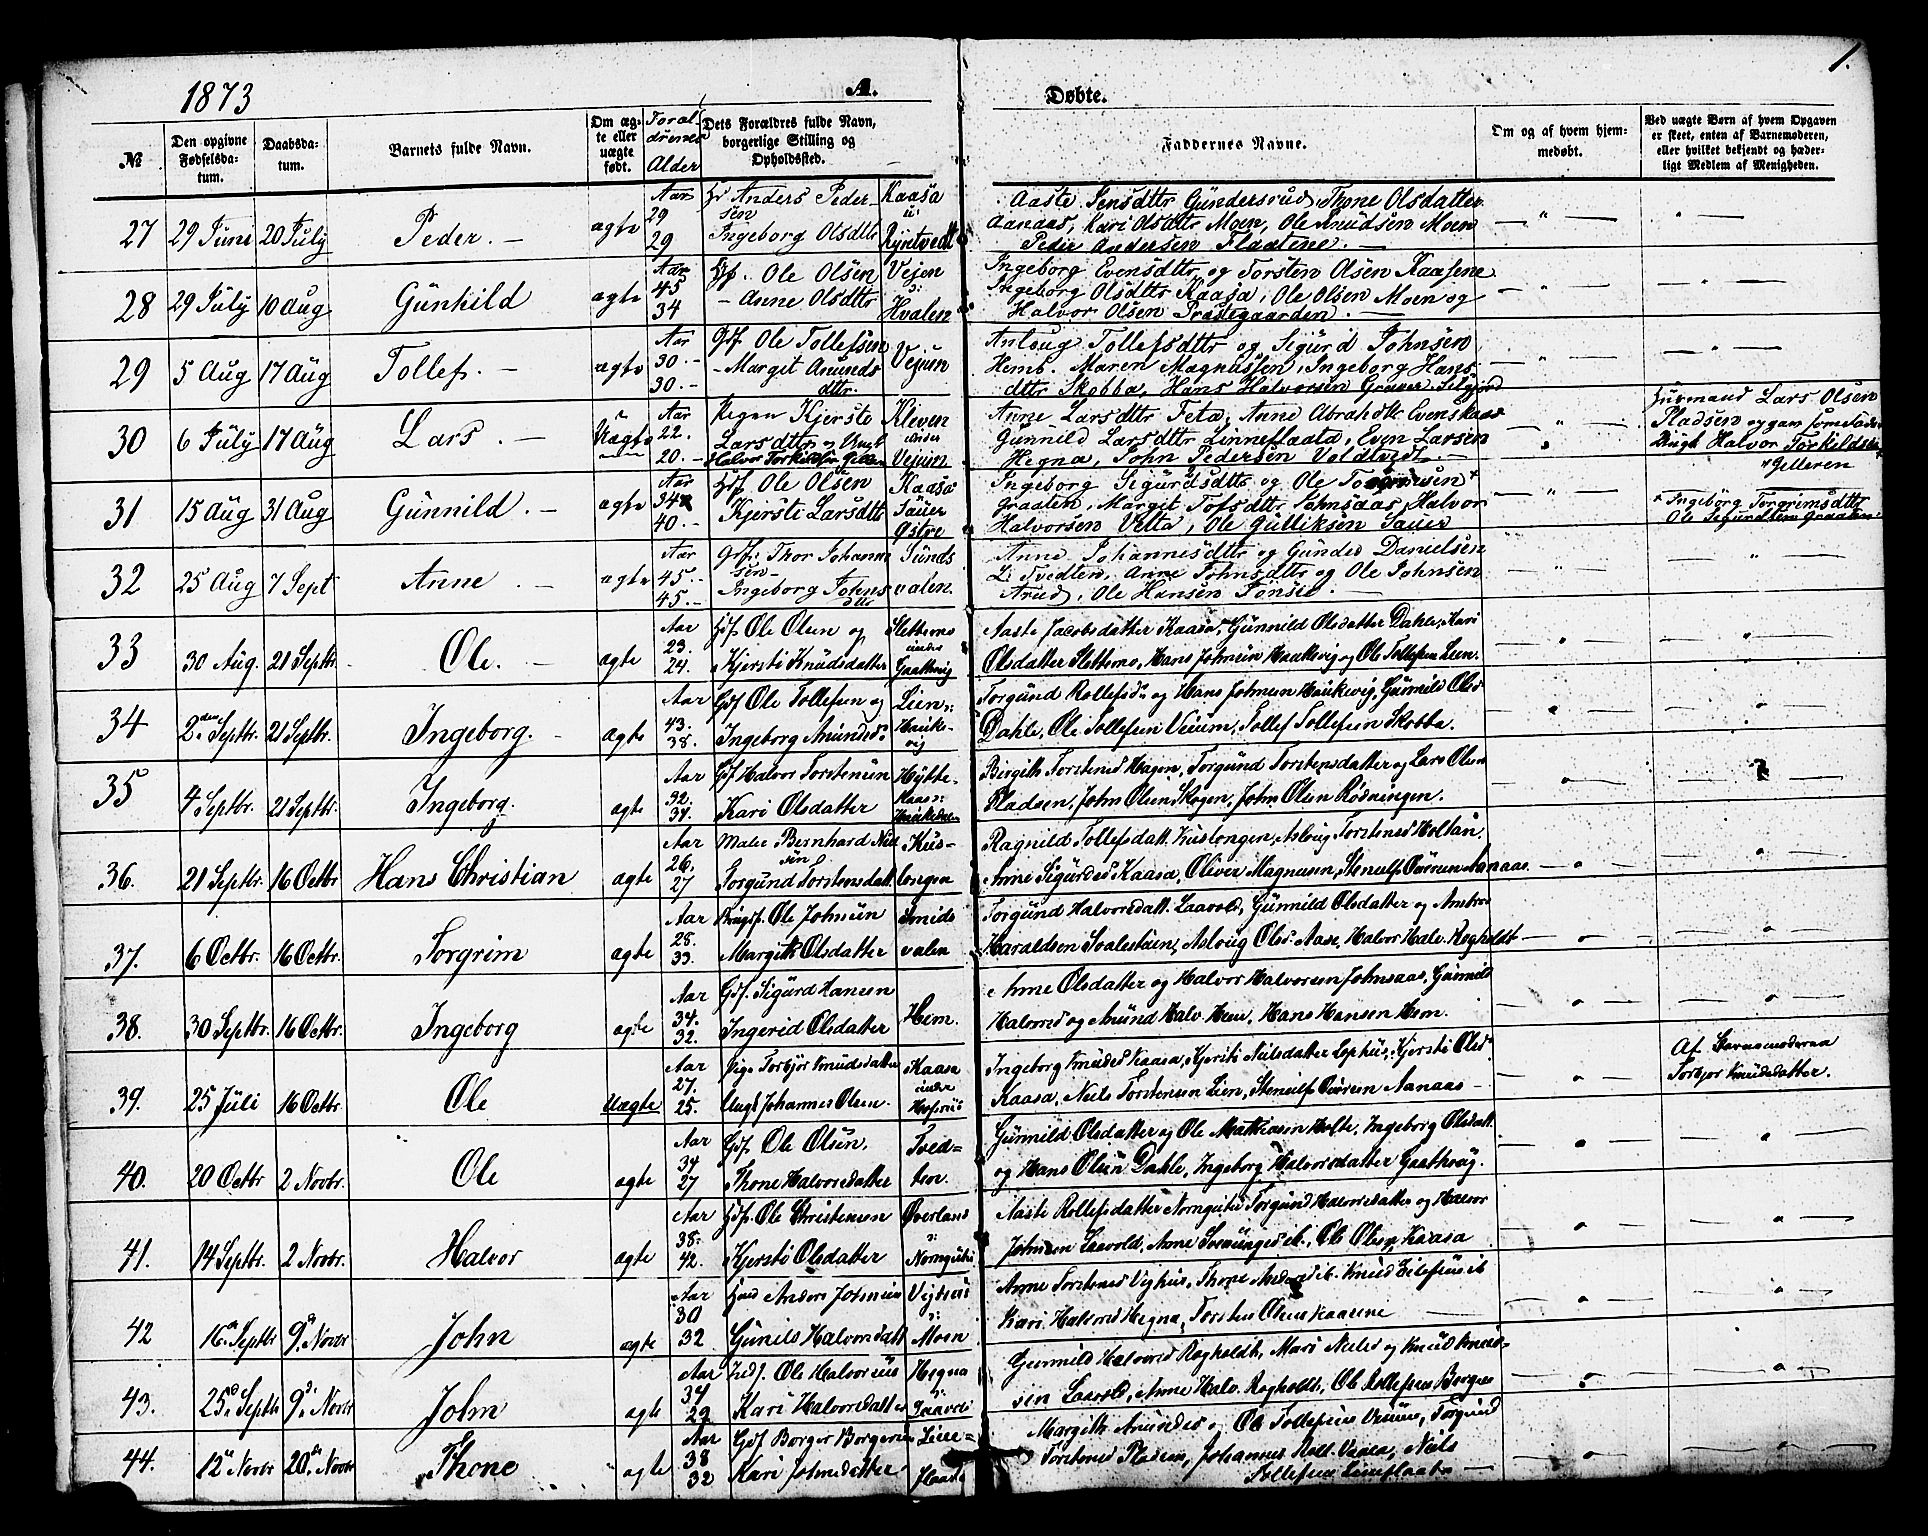 1873
A.
Døbte.
1.
№
Den opgivne Fødselsdatum.
Daabsdatum.
Barnets fulde Navn.
Om ægte eller uægte født.
Forældrenes Alder
Dets Forældres fulde Navn, borgerlige Stilling og Opholdssted.
Faddernes Navne.
Om og af hvem hjemmedøbt.
Ved uægte Børn af hvem Opgaven er skeet, enten af Barnemoderen, eller hvilket bekjendt og hæderligt Medlem af Menigheden.
27 29 Juni 20 July Peder. — ægte Aar 29 29
Anders Pedersen
Ingeborg Olsdttr
Kaasa
Aaste Jensdttr Gundersrud, Thone Olsdatter
Aanaas, Kari Olsdttr Moen, Ole Knudsen Moen
Peder Andersen Flaatene. —
28 29 July 10 Aug Gunhild ægte Aar 45 34
Ole Olsen
– Anne Olsdttr
Vejen
Hvalen
Ingeborg Evensdttr og Torsten Olsen Kaasene
Ingeborg Olsdttr Kaasa, Ole Olsen Moen og
Halvor Olsen Præstegaarden. —
29 5 Aug 17 Aug Tollef. — ægte Aar 30.– 30.–
Gdf. Ole Tollefsen
– Margit Anundsdttr.
Vejum
Anloug Tollefsdttr og Sigurd Johnsen
Hemb. Maren Magnussen, Ingeborg Hansdttr
Skobba, Hans Halvorsen Graver Seljord
30 6 July 17 Aug Lars. — Uægte Aar 22. 20.–
Pigen Kjersti
Larsdttr og Ungk
Halvor Torkildsen
Kleven
under
Vejum
Anne Larsdttr Feta, Anne Abrahdttr Evenskaas
Gunnild Larsdttr Linneflaata, Even Larsen
Hegna, John Pedersen Valdtvedt. —
Husmand Lars Olsen
Pladsen
Ungk Halvor Torkildsen
Gelleren
31 15 Aug 31 Aug Gunnild. — ægte Aar 34 40.–
Ole Olsen
Kjersti Larsdttr
Kaasa
Sauer
Østre
Ingeborg Sigurdsdttr og Ole
Graaten, Margit Tofsdttr Johnsaas, Halvor
Halvorsen Vetta, Ole Gulliksen Sauer
+ Ingeborg Torgrimsdttr
Ole Sigurdsen Graaten
32 25 Aug 7 Sept Anne — ægte Aar 45.– 45.–
Gdf. Thor Johannesen
Ingeborg Johnsdttr
Sundsvalen.
Anne Johannesdttr og Gunder Danielsen
Li Tvedten, Anne Johnsdttr og Ole Johnsen
Arud, Ole Hansen Tønset. —
33 30 Aug. 21 Septbr. Ole. — ægte Aar 23. 24.
Ole Olsen og
Kjersti Knudsdatter
Slettemo
under
Gaathvig
Aaste Jacobsdatter Kaasa, Gunnild Olsdatter Dahle, Kari
Olsdatter Slettemo, Hans Johnsen Haukevig og Ole Tollefsen Leen.
34 2den Septbr. 21 Septbr. Ingeborg. — ægte Aar 43. 38.
Gdf Ole Tollefsen og
Ingeborg Anundsd:
Lien
Haukevig
Torgund Rollefsd: og Hans Johnsen Haukevig, Gunnild Olsd:
Dahle, Ole Tollefsen Veium, Tollef Tollefsen Skobba.
35 4 Septbr. 21 Septbr. Ingeborg. ægte Aar 32. 34.
Gdf Halvor Torstensen
Kari Olsdatter
Hyttekaas
Birgith Torstensd Hagen, Torgund Torstensdatter og Lars Olsen
Pladsen, John Olsen Skogen, John Olsen Rødningen.
36. 21 Septbr. 16 Octbr. Hans Christian ægte Aar 26. 27
Maler Bernhard Nielsen
Torgund Torstensdatt.
Kuslongen
Ragnild Tollefsdatt. Kuslongen, Aslaug Torstensd Holtan,
Anne Sigurdsd Kaasa, Oliver Magnusen, Stenulf Sørensen Aanaas.
37. 6 Octbr. 16 Octbr. Torgrim ægte Aar 28. 33.
Ole Johnsen
Margith Olsdatter
Smidsvalen
Torgund Halvorsdatt. Laavold, Gunnild Olsdatter og Ambros
Haraldsen Svalestuen, Aslaug Olsd. Aase, Halvor Halv. Rogholdt
38. 30 Septbr. 16 Octbr. Ingeborg ægte Aar 34. 32.
Gdf. Sigurd Hansen
Ingerid Olsdatter
Hem.
Anne Olsdatter og Halvor Halvorsen Johnsaas, Gunnild
Halvorsd og Anund Halv. Hem, Hans Hansen Hem.
39. 25 Juli 16 Octbr. Ole Uægte Aar 27. 25.
Pige Torbjør Knudsdatter
Ungk Johannes Olsen.
Kaasa
under
Ingeborg Knudsd Kaasa, Kjersti Nielsdatter Lophus, Kjersti Olsd:
Kaasa, Niels Torstensen Lien, Stenulf Sørensen Aanaas –
Af Barnemoderen
Torbjør Knudsdatter.
40. 20 Octbr 2 Novbr. Ole ægte Aar 34 27
Gdf. Ole Olsen.
Thone Halvorsdatter
Tvedten.
Gunnild Olsdatter og Ole Mathiasen Holte, Ingeborg Olsdatt.
og Hans Olsen Dahle, Ingeborg Halvorsdatter Gaathvig.
41. 14 Septbr. 2 Novbr. Halvor ægte Aar 38. 42.
Ole Christensen
Kjersti Olsdatter
Øverland
Aaste Rollefsdatter Torgund Halvorsdatter og Halvor
Johnsen Laavold, Anne ib., Ole Olsen Kaasa
42 16d. Septbr 9d. Novbr John ægte Aar 30 32
Anders Johnsen
Gunild Halvorsdatt
Moen
Anne Torstensd Vighus, Thone ib. Knud ib
Kari Halvorsd Hegna, Torsten Olsen Kaasene
43. 25d. Septbr 9d. Novbr John ægte Aar 34 29
Ole Halvorsen
Kari Halvorsdatter
Hegna
Gunnild Halvorsd Rogholdt, Mari Nielsd og Knud Knudsen
Laavold, Anne Halv. Rogholdt, Ole Rollefsen Borgen
44. 12d Novbr 20d. Novbr Thone ægte Aar 38 32
Gdf Borger Borgersen
Kari Johnsdatter
Margith Anundsd og Ole Tollefsen Veium, Torgund
Torstensd Pladsen, Johannes Niels
Tollefsen Lineflaata —